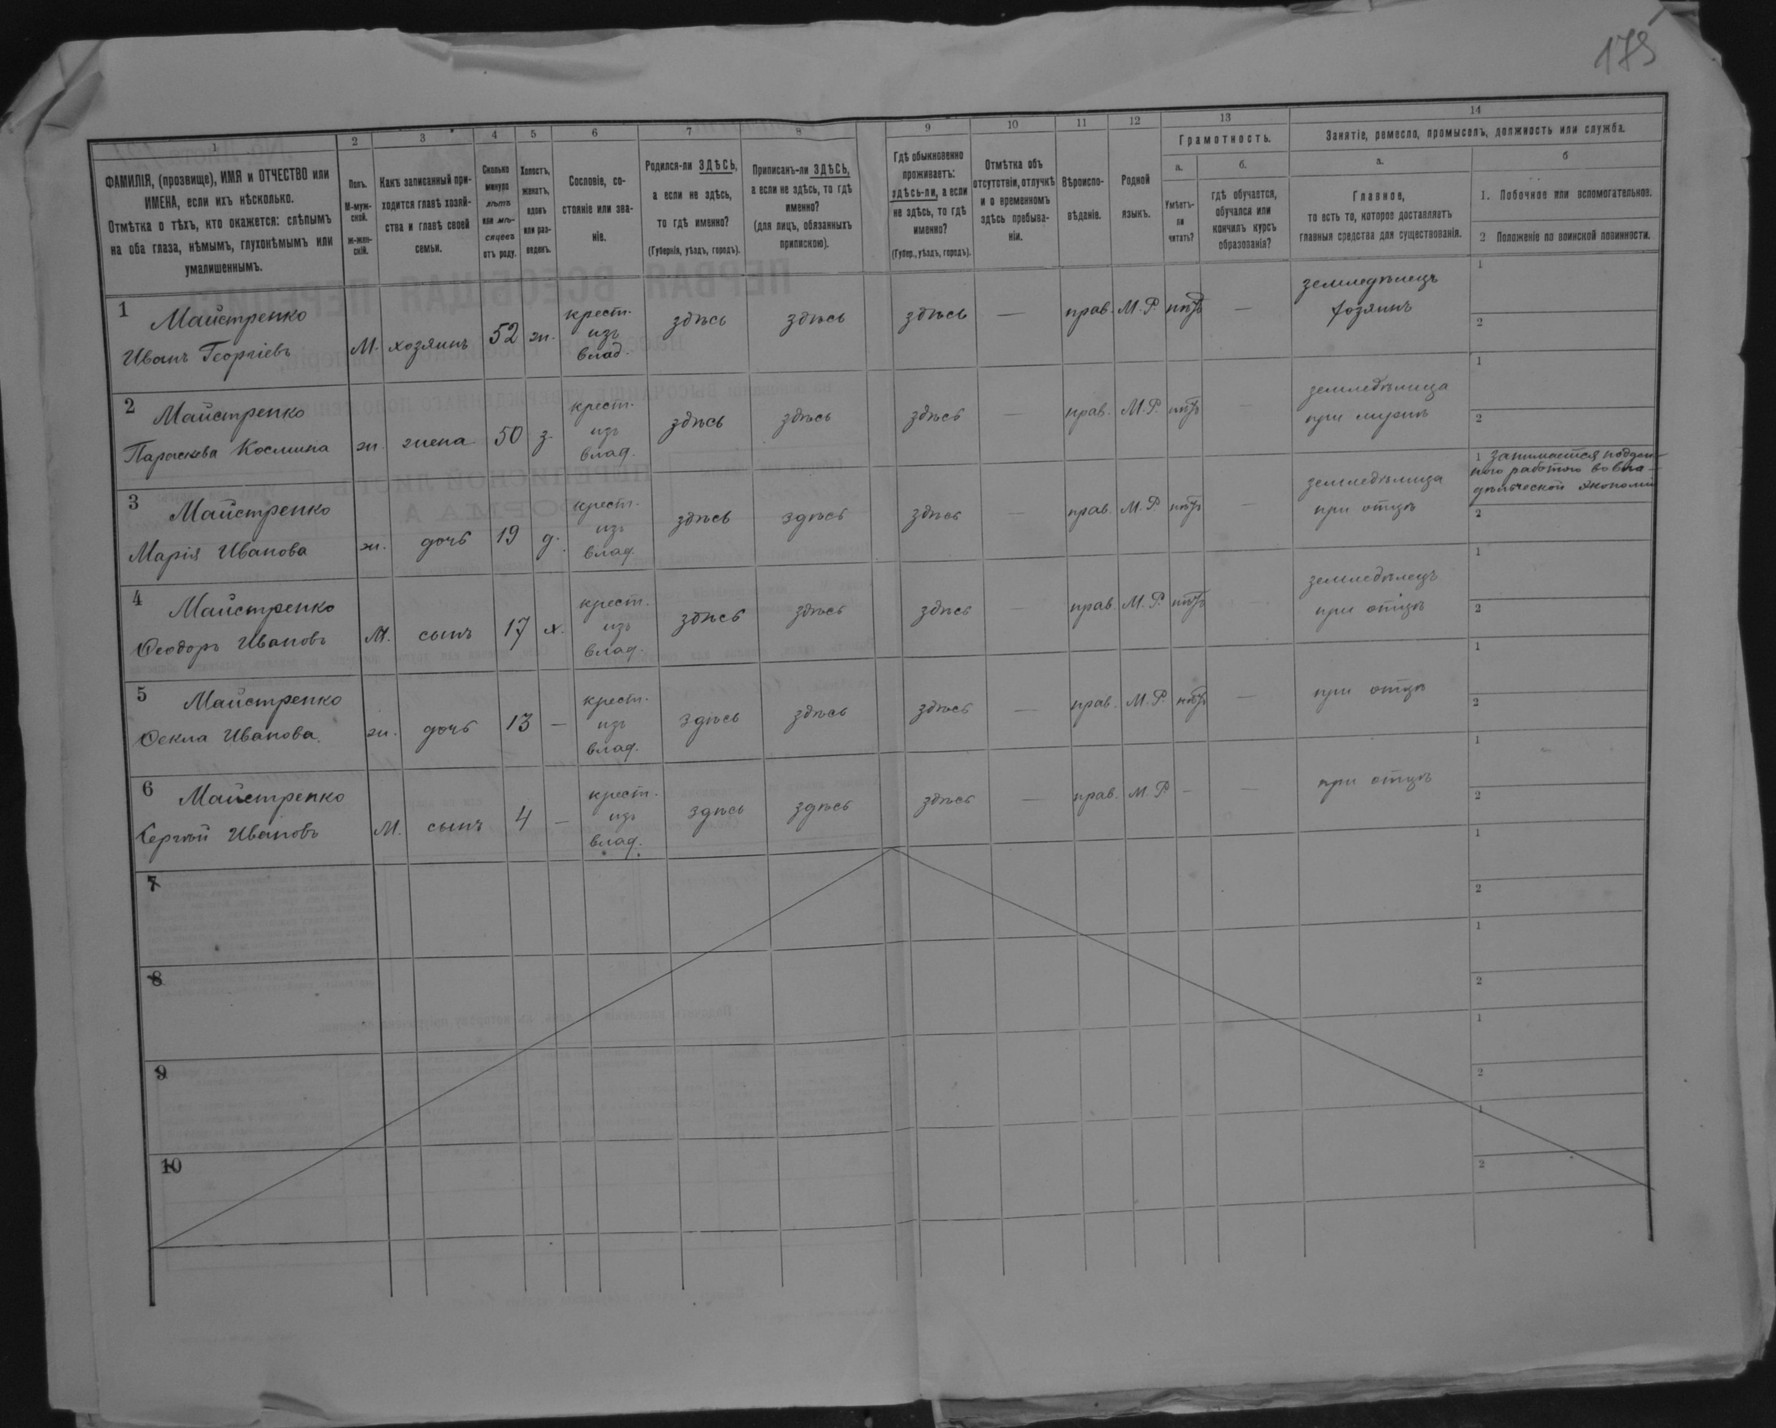 175
1
ФАМИЛІЯ, (прозвище), ИМЯ и ОТЧЕСТВО или
ИМЕНА, если ихъ нѣсколько.
Отмѣтка о тѣхъ, кто окажется: слѣпымъ
на оба глаза, нѣмымъ, глухонѣмымъ или
умалишеннымъ.
2
Полъ.
М-муж-
ской.
Ж-жен-
скій.
3
Какъ записанный при-
ходится главѣ хозяй-
ства и главѣ своей
семьи.
4
Сколько
минуло
лѣтъ
или мѣ-
сяцевъ
отъ роду.
5
Холостъ,
женатъ,
вдовъ
или раз-
веденъ.
6
Сословіе, со-
стояніе или зва-
ніе.
7
Родился-ли ЗДѢСЬ,
а если не здѣсь,
то гдѣ именно?
(Губернія, уѣздъ, городъ).
8
Приписанъ-ли ЗДѢСЬ,
а если не здѣсь, то гдѣ
именно?
(для лицъ, обязанныхъ
припискою).
9
Гдѣ обыкновенно
проживаетъ:
здѣсь-ли, а если
не здѣсь, то гдѣ
именно?
(Губер., уѣздъ, городъ).
10
Отмѣтка объ
отсутствіи, отлучкѣ
и о временномъ
здѣсь пребыва-
ніи.
11
Вѣроиспо-
вѣданіе.
12
Родной
языкъ.
13
Грамотность.
а.
Умѣетъ-
ли
читать?
б.
гдѣ обучается,
обучался или
кончилъ курсъ
образованія?
14
Занятіе, ремесло, промыселъ, должность или служба.
а.
Главное,
то есть то, которое доставляетъ
главныя средства для существованія.
б
1. Побочное или вспомогательное.
2 Положеніе по воинской повинности.
1 Майстренко
Иванъ Георгіевъ
М. хозяинъ 52 ж.
крест.
изъ
влад.
здѣсь здѣсь здѣсь — прав. М. Р. нѣтъ —
земледѣлецъ
хозяинъ
1
2
2 Майстренко
Параскева Космина
ж. жена 50 з.
крест.
изъ
влад.
здѣсь здѣсь здѣсь — прав. М. Р. нѣтъ —
земледѣлица
при мужѣ
1
2
3 Майстренко
Марія Иванова
ж. дочь 19 д.
крест.
изъ
влад.
здѣсь здѣсь здѣсь — прав. М. Р. нѣтъ —
земледѣлица
при отцѣ
1 Занимается поден-
ною работою во вла-
дѣльческой экономіи
2
4 Майстренко
Ѳеодоръ Ивановъ
М. сынъ 17 х.
крест.
изъ
влад.
здѣсь здѣсь здѣсь — прав. М. Р. нѣтъ —
земледѣлецъ
при отцѣ
1
2
5 Майстренко
Ѳекла Иванова.
ж. дочь 13 —
крест.
изъ
влад.
здѣсь здѣсь здѣсь — прав. М. Р. нѣтъ —
при отцѣ
1
2
6 Майстренко
Сергѣй Ивановъ
М. сынъ 4 —
крест.
изъ
влад.
здѣсь здѣсь здѣсь — прав. М. Р. — —
при отцѣ
1
2
7
1
2
8
1
2
9
1
2
10
1
2